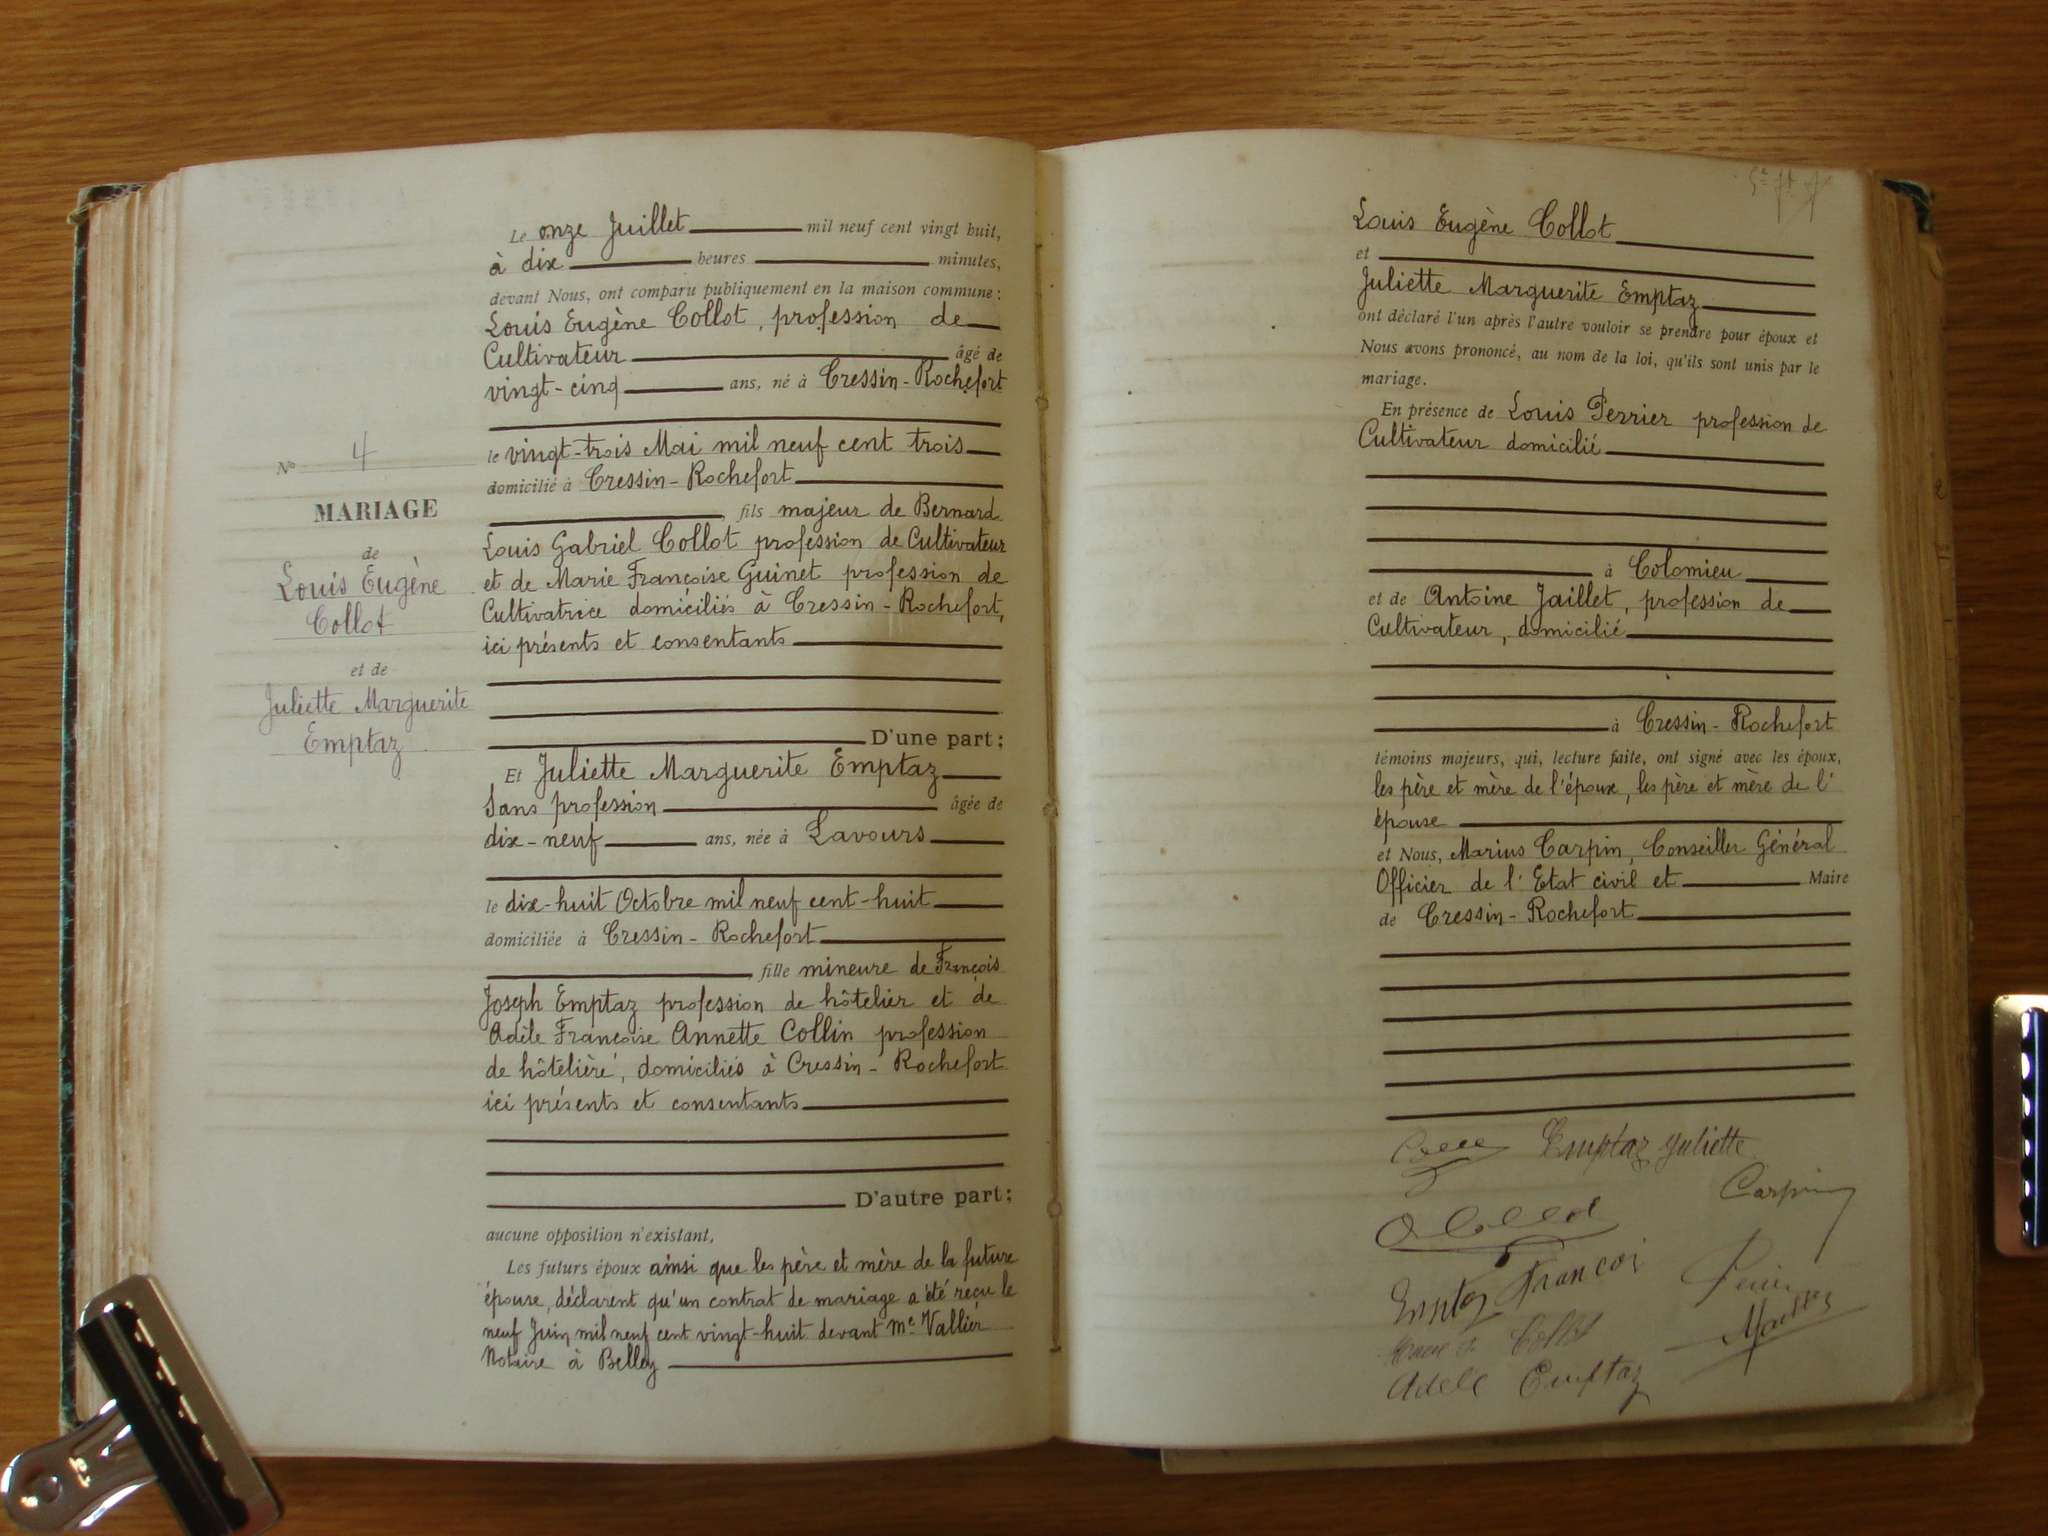 Nº 4
MARIAGE
de
Louis Eugène
Collot
et de
Juliette Marguerite
Emptaz
Le onze Juillet mil neuf cent vingt huit,
à dix heures minutes,
devant Nous, ont comparu publiquement en la maison commune :
Louis Eugène Collot, profession de
Cultivateur âgé de
vingt-cinq ans, né à Cressin-Rochefort
le vingt-trois Mai mil neuf cent trois
domicilié à Cressin-Rochefort
, fils majeur de Bernard
Louis Gabriel Collot profession de Cultivateur
et de Marie Françoise Guinet profession de
Cultivatrice domiciliés à Cressin-Rochefort,
ici présents et consentants
D'une part ;
Et Juliette Marguerite Emptaz
Sans profession âgée de
dix-neuf ans, née à Lavours
le dix-huit Octobre mil neuf cent-huit
domiciliée à Cressin-Rochefort
, fille mineure de François
Joseph Emptaz profession de hôtelier et de
Adèle Françoise Annette Collin profession
de hôtelière, domiciliés à Cressin-Rochefort
ici présents et consentants
D'autre part ;
aucune opposition n'existant,
Les futurs époux ainsi que les père et mère de la future
épouse, déclarent qu'un contrat de mariage a été reçu le
neuf Juin mil neuf cent vingt-huit devant Me Vallier
Notaire à Belley
Louis Eugène Collot
et
Juliette Marguerite Emptaz
ont déclaré l'un après l'autre vouloir se prendre pour époux et
Nous avons prononcé, au nom de la loi, qu'ils sont unis par le
mariage.
En présence de Louis Perrier profession de
Cultivateur domicilié
à Colomieu
et de Antoine Jaillet, profession de
Cultivateur, domicilié
à Cressin-Rochefort
témoins majeurs, qui, lecture faite, ont signé avec les époux,
les père et mère de l'époux, les père et mère de l'
épouse
et Nous, Marius Carpin, Conseiller Général
Officier de l'Etat civil et Maire
de Cressin-Rochefort
Emptaz Juliette
Carpin
Collot
Emptaz François
Collot
Adèle Emptaz